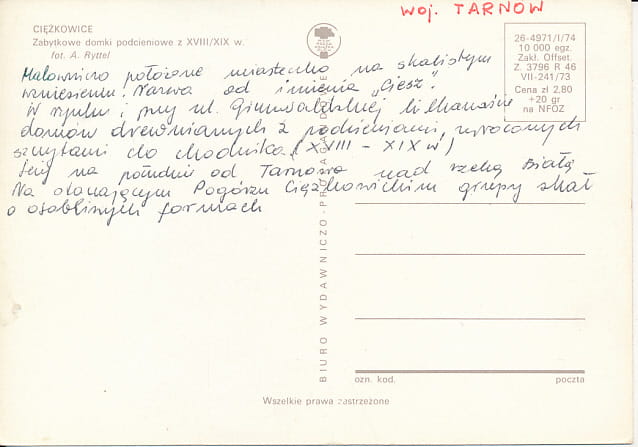 woj. TARNÓW
CIĘŻKOWICE
Zabytkowe domki podcieniowe z XVIII/XIX w.
fot. A. Ryttel
26-4971/I/74
10 000 egz.
Zakł. Offset.
Z. 3796 R 46
VII-241/73
Cena zł 2,80
+20 gr
na NFOZ
Malowniczo położone miasteczko na skalistym
wzniesieniu. Nazwa od imienia „Ciesz".
W rynku i przy ul. Grunwaldzkiej kilkanaście
domów drewnianych z podcieniami, zwróconych
szczytami do chodnika (XVIII - XIX w)
Leży na południe od Tarnowa nad rzeką Białą
Na otaczającym Pogórzu Ciężkowickim grupy skał
o osobliwych formach
BIURO WYDAWNICZO-PROPAGANDOWE
ozn. kod. poczta
Wszelkie prawa zastrzeżone